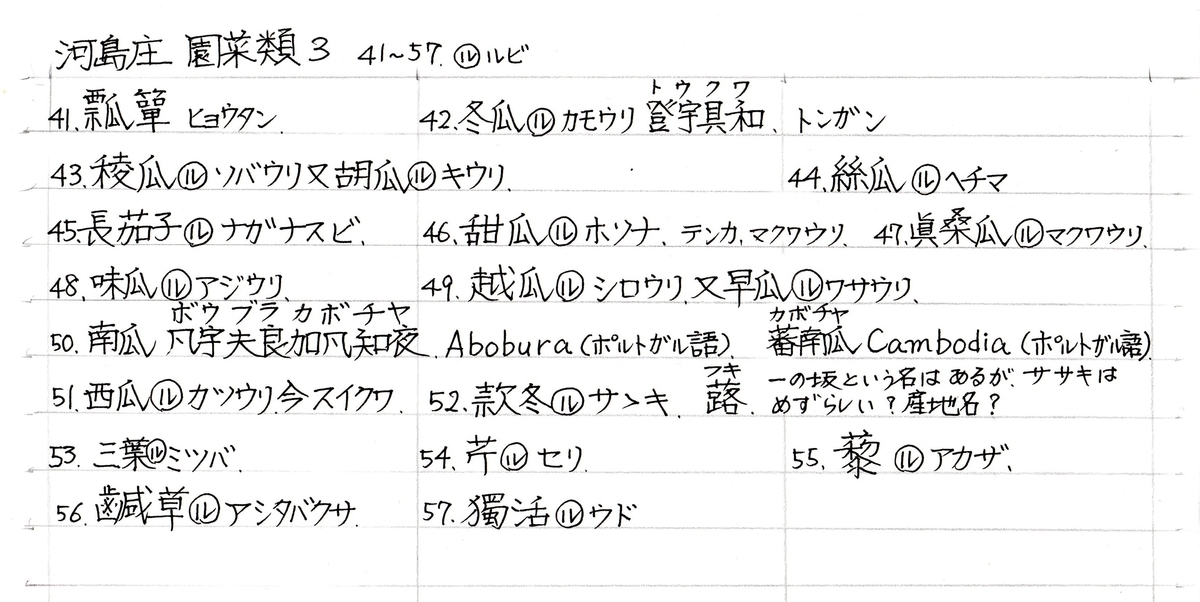 河島庄 園菜類3 41~57. ㋸ルビ
トウクワ
41. 瓢箪 ヒョウタン. 42. 冬瓜㋸カモウリ 登宇具和. トンガン
43. 稜瓜㋸ソバウリ又胡瓜㋸キウリ. 44. 絲瓜㋸ヘチマ
45. 長茄子㋸ナガナスビ. 46. 甜瓜㋸ホソナ. テンカ, マクワウリ. 47. 眞桑瓜㋸マクワウリ.
48. 味瓜㋸アジウリ. 49. 越瓜㋸シロウリ. 又早瓜㋸ワサウリ.
ボウブラカボチャ カボチャ
50. 南瓜 凡宇夫良加凡知夜. Abobura (ポルトガル語). 蕃南瓜 Cambodia (ポルトガル語).
フキ 一の坂という名はあるが. ササキは
51. 西瓜㋸カツウリ. 今スイクワ. 52. 款冬㋸サゝキ. 蕗. めずらしい?産地名?
53. 三葉㋸ミツバ. 54. 芹㋸セリ. 55. 藜㋸アカザ.
56. 鹹草㋸アシタバクサ. 57. 獨活㋸ウド